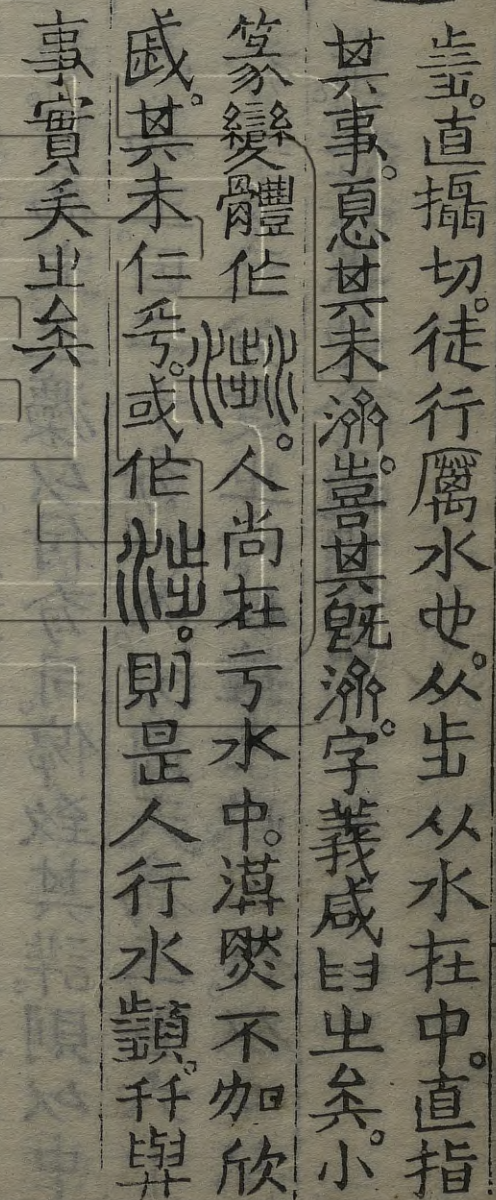 直攝切。徒行厲水也。从步从水在中。直指
其事。㥑其未濟。喜其既濟。字義咸之矣。小
篆變體作𣻣。人尚在亏水中。漠然不加欣
戚。其未仁乎。或作涉。則是人行水顛。與
事實失之矣